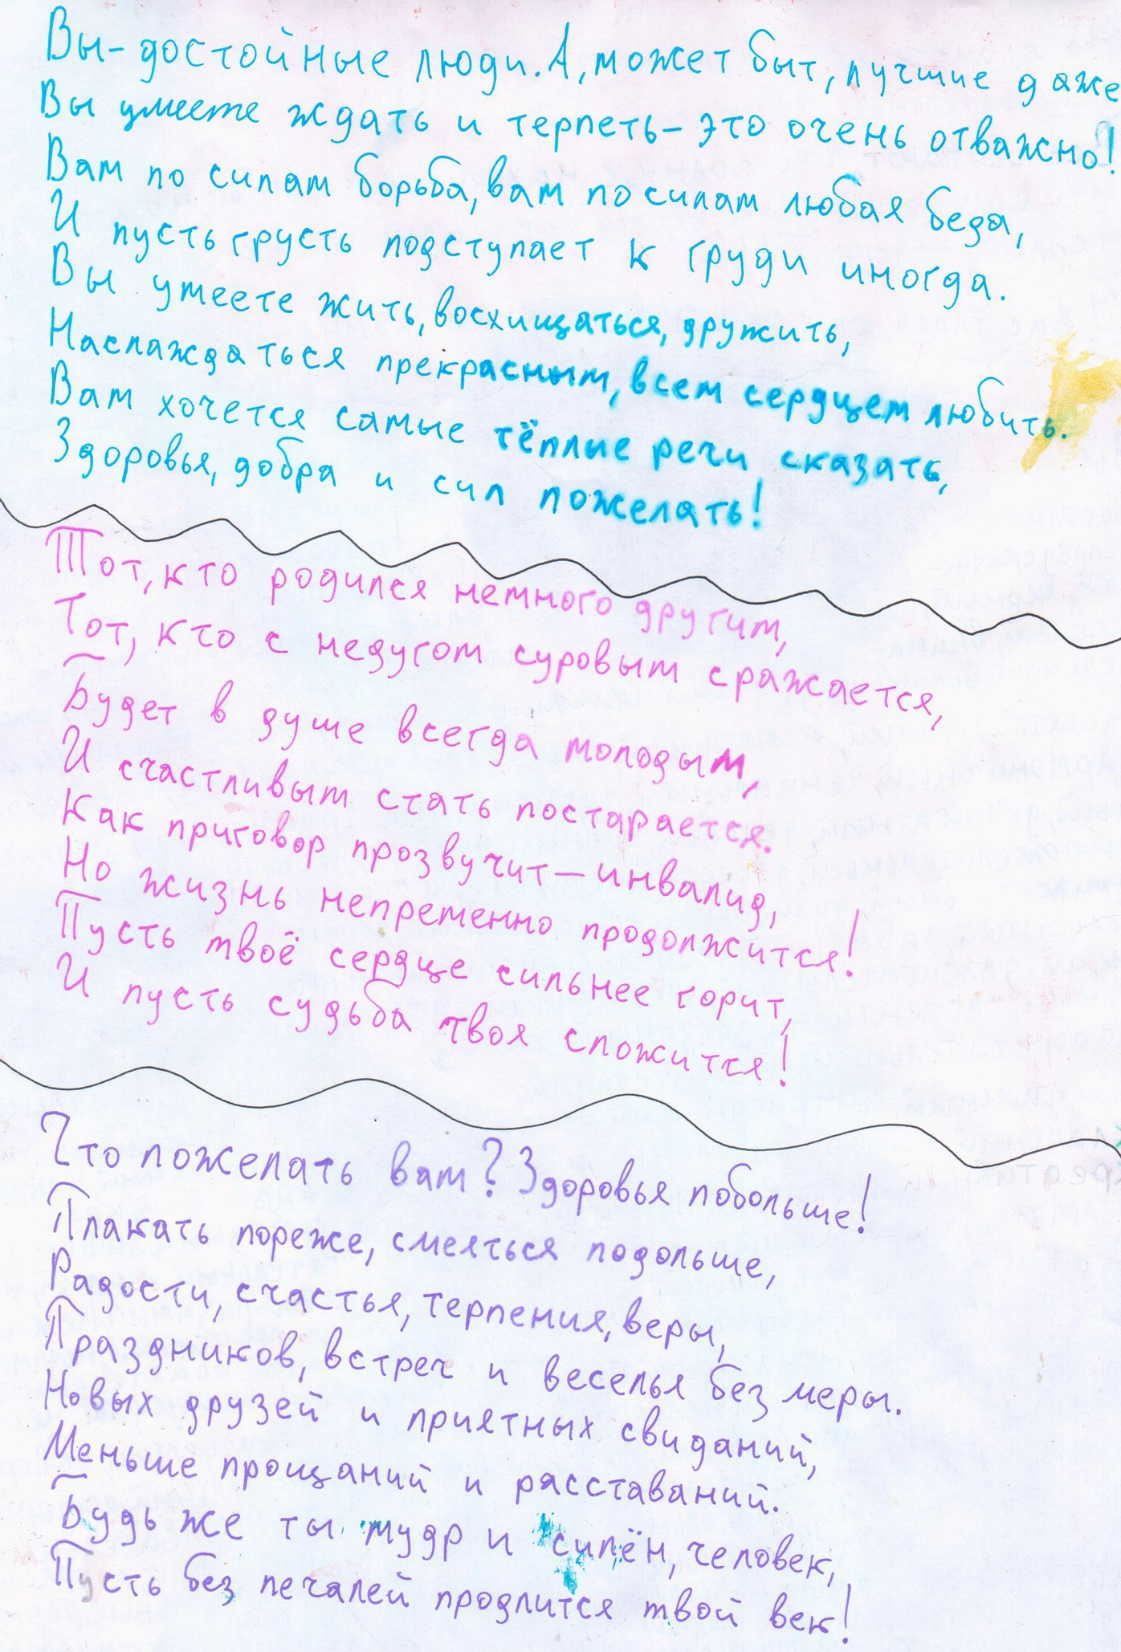 Вы-достойные люди. А, может быт, лучшие даже
Вы умеете ждать и терпеть-это очень отважно!
Вам по силам борьба, вам по силам любая беда,
И пусть грусть подступает к груди иногда.
Вы умеете жить, восхищаться, дружить,
Наслаждаться прекрасным, всем сердцем любить.
Вам хочется самые тёплые речи сказать,
Здоровья, добра и сил пожелать!
Тот, кто родился немного другим,
Тот, кто с недугом суровым сражается,
Будет в душе всегда молодым,
И счастливым стать постарается.
Как приговор прозвучит-инвалид,
Но жизнь непременно продолжится!
Пусть твоё сердце сильнее горит,
И пусть судьба твоя сложится!
Что пожелать вам? Здоровья побольше!
Плакать пореже, смеяться подольше,
Радости, счастья, терпения, веры,
Праздников, встреч и веселья без меры.
Новых друзей и приятных свиданий,
Меньше прощаний и расставаний.
Будь же ты мудр и силён, человек,
Пусть без печалей продлится твой век!